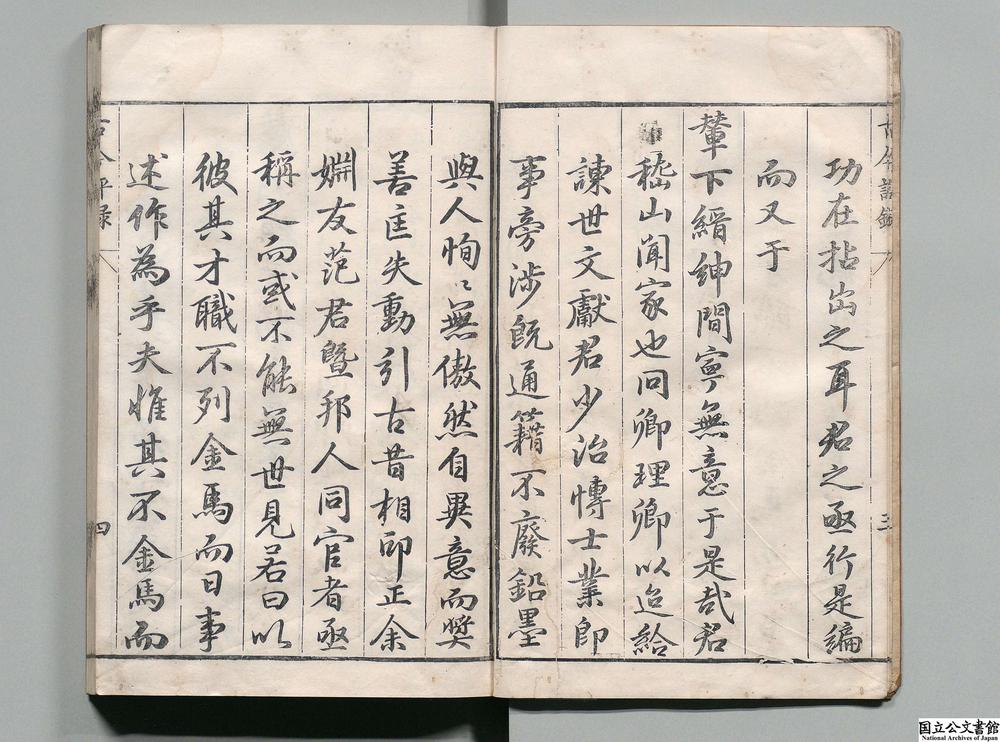 功在拈出之耳君之亟行是編
而又于
輦下縉紳間寧無意于是哉君
嵇山聞家也冏卿理卿以迨給
諫世文獻君少治博士業即
事旁涉既通籍不廢鉛墨
與人恂〻無傲然自異意而奬
善匡失動引古昔相印正余
姻友范君暨邦人同官者亟
稱之而或不能無世見若曰以
彼其才職不列金馬而日事
述作為乎夫惟其不金馬而
三
四
国立公文書館
National Archives of Japan